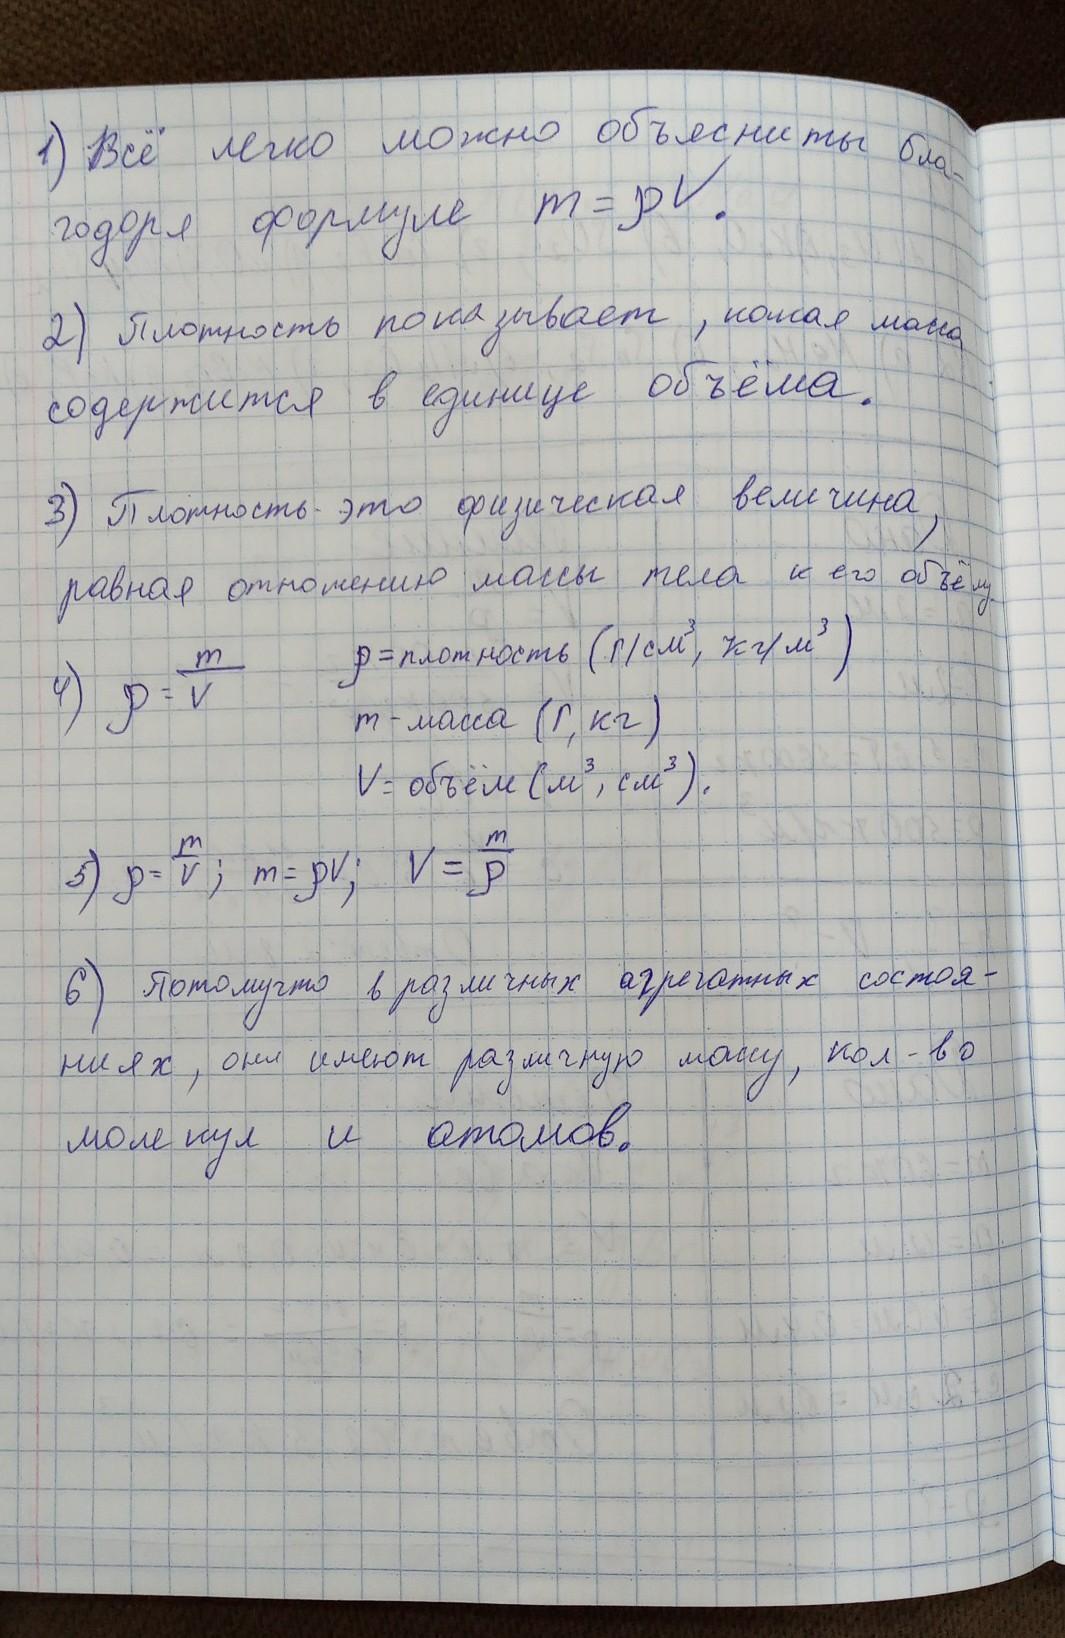 1) Всё легко можно объясниты бла-
годоря формуле m = ρV.
2) Плотность показывает, какая масса
содержится в единице объёма.
3) Плотность- это физическая величина,
равная отношению массы тела к его объёму.
4) ρ = m/V ρ = плотность (г/см³, кг/м³)
m - масса (г, кг)
V = объём (м³, см³).
5) ρ = m/V; m = ρV; V = m/ρ
6) Потомучто в различных агрегатных состоя-
ниях, они имеют различную массу, кол-во
молекул и атомов.